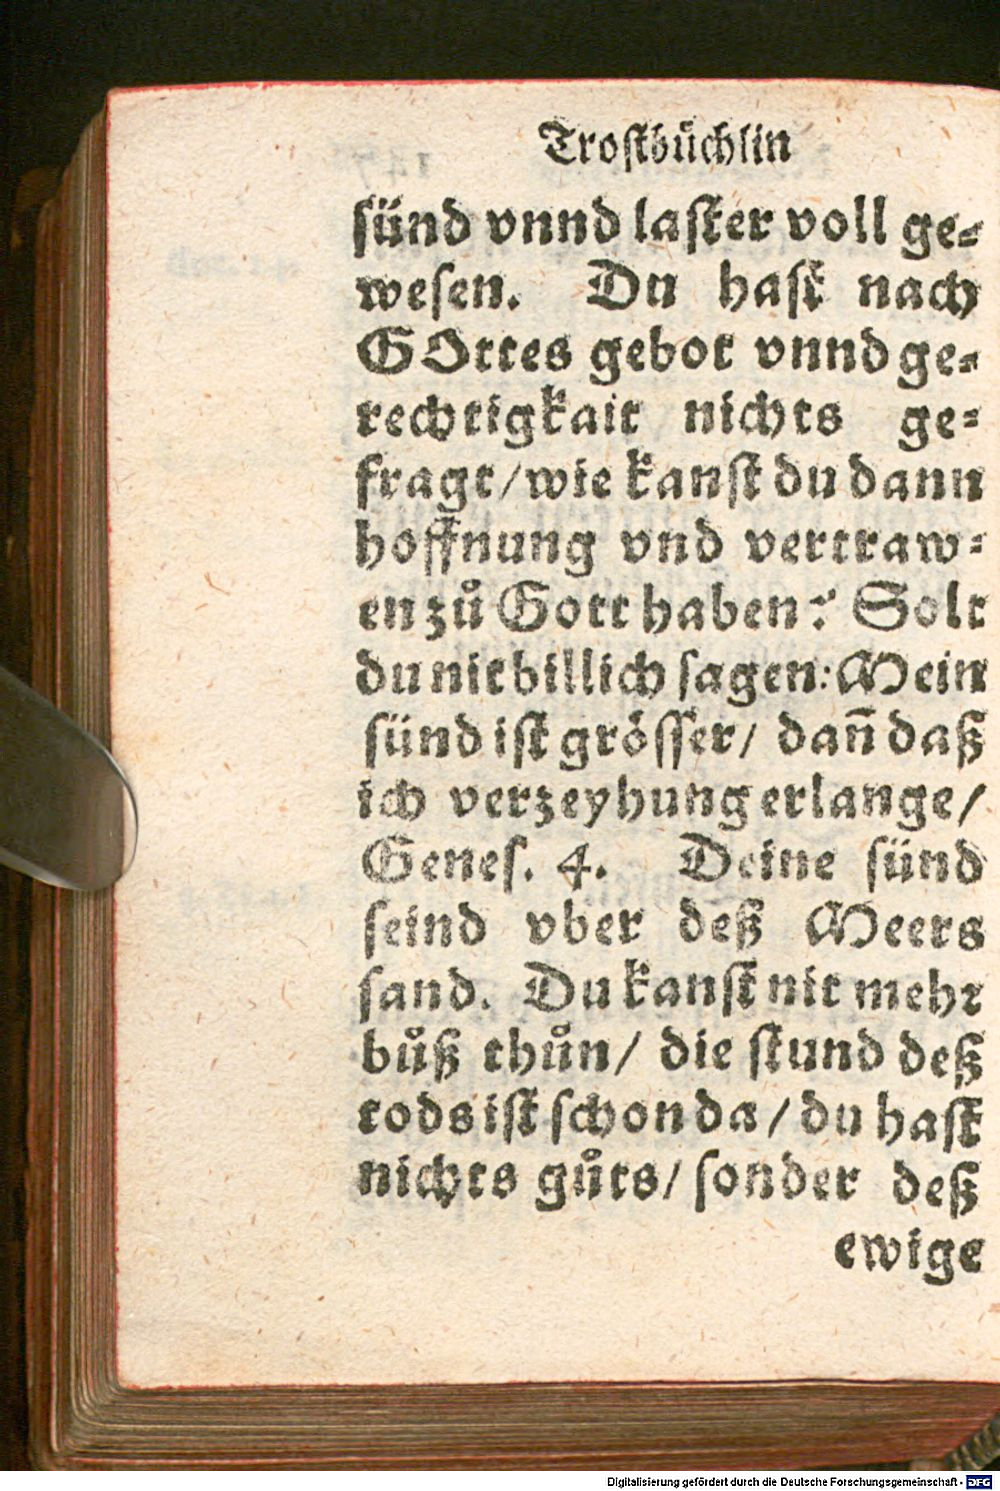 Troſtbuͤchlin
ſünd vnnd laſter voll ge⸗
weſen. Du haſt nach
GOttes gebot vnnd ge⸗
rechtigkait nichts ge⸗
fragt/ wie kanſt du dann
hoffnung vnd vertraw⸗
en zuͦ Gott haben? Solt
du nit billich ſagen: Mein
ſünd iſt groͤſſer/ dañ daß
ich verzeyhung erlange/
Geneſ. 4. Deine ſünd
ſeind vber deß Meers
ſand. Du kanſt nit mehr
buͦß thuͦn/ die ſtund deß
tods iſt ſchon da/ du haſt
nichts guͦts/ ſonder deß
ewige
Digitalisierung gefördert durch die Deutsche Forschungsgemeinschaft - DFG